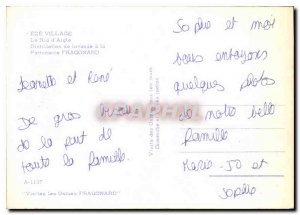 EZE VILLAGE
Le Nid d'Aigle
Distillation de lavande à la
Parfumerie FRAGONARD
Jeannette et René
De gros bisous
de la part de
toute la famille.
A-1137
"Visitez les Usines FRAGONARD"
Sophie et moi
vous envoyons
quelques photos
de notre belle
famille
Marie-Jo et
Sophie